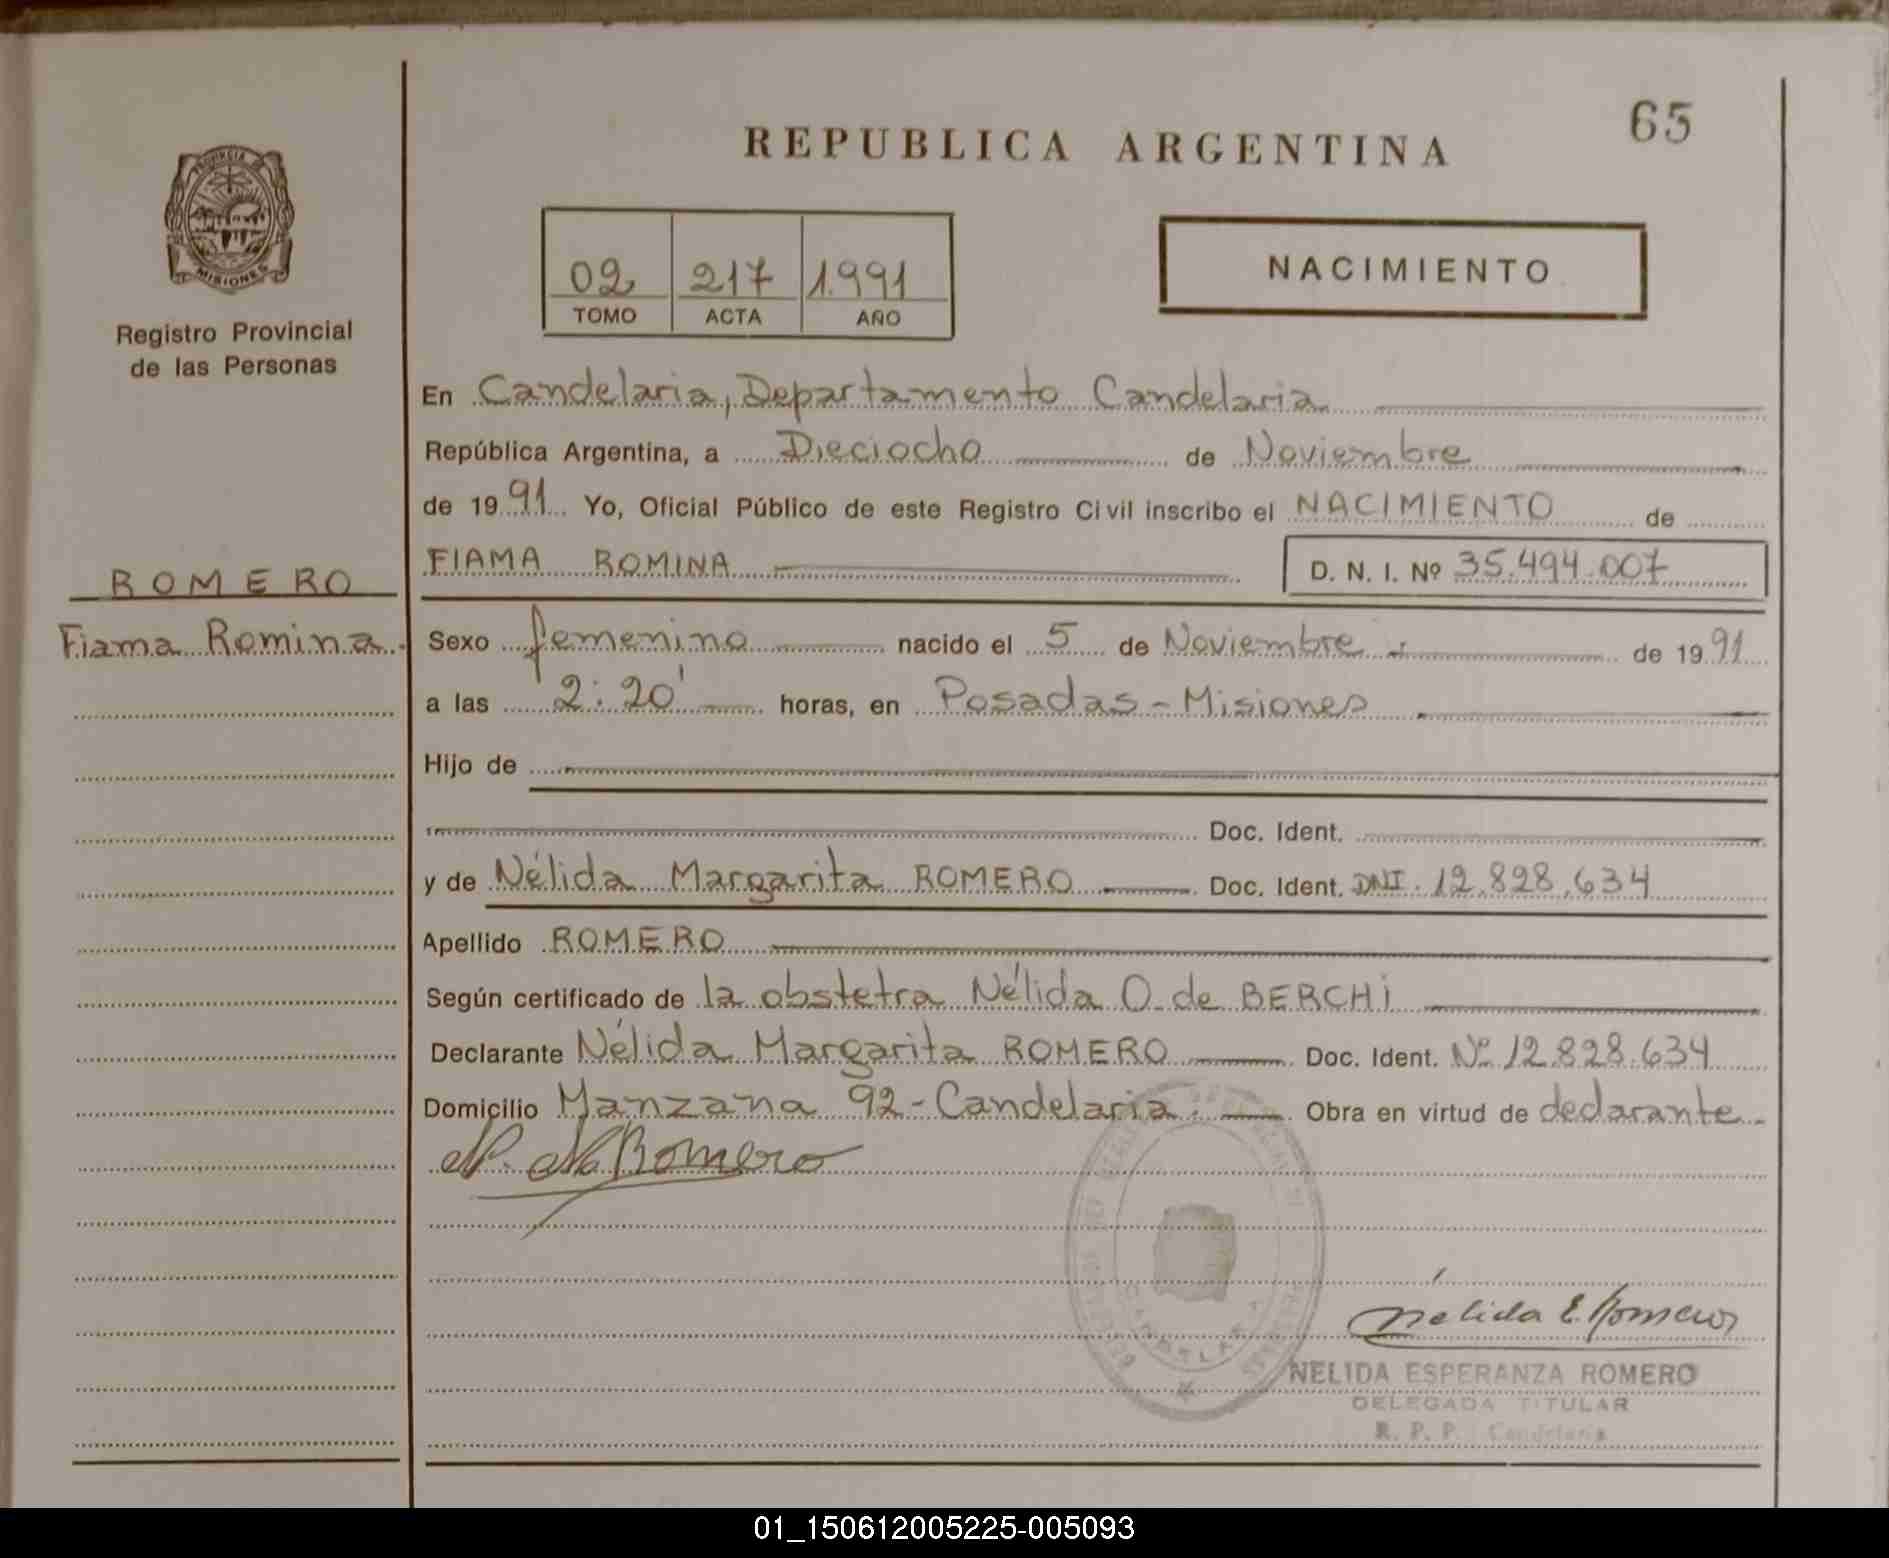 65
REPUBLICA ARGENTINA
PROVINCIA DE
MISIONES
Registro Provincial
de las Personas
02 217 1.991
TOMO ACTA AÑO
NACIMIENTO
En Candelaria, Departamento Candelaria
República Argentina, a Dieciocho de Noviembre
de 1991 Yo, Oficial Público de este Registro Civil inscribo el NACIMIENTO de
FIAMA ROMINA D. N. I. Nº 35.494.007
ROMERO
Fiama Romina.
Sexo femenino nacido el 5 de Noviembre de 1991
a las 2:20' horas, en Posadas - Misiones
Hijo de
Doc. Ident.
y de Nélida Margarita ROMERO Doc. Ident. DNI. 12.828.634
Apellido ROMERO
Según certificado de la obstetra Nélida O. de BERCHi
Declarante Nélida Margarita ROMERO Doc. Ident. Nº 12.828.634
Domicilio Manzana 92 - Candelaria. Obra en virtud de declarante.
N. M. Romero
Nélida E. Romero
NELIDA ESPERANZA ROMERO
DELEGADA TITULAR
R. P. P. Candelaria
01_150612005225-005093